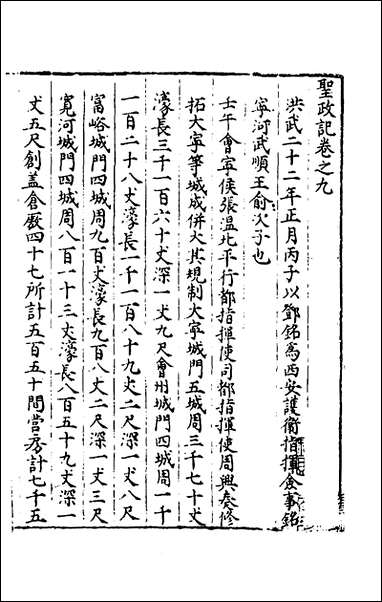 聖政記卷之九
洪武二十二年正月丙子以鄧銘爲西安護衛指揮僉事銘
寧河武順王俞次子也
壬午會寧侯張温北平行都指揮使司都指揮使周興奏修
拓大寧等城成併大其規制大寧城門五城周三千七十丈
濠長三千一百六十丈深一丈九尺會州城門四城周一千
一百二十八丈濠長一千一百八十九丈二尺深一丈八尺
富峪城門四城周九百丈濠長九百八丈二尺深一丈三尺
寬河城門四城周八百一十三丈濠長八百五十九丈深一
丈五尺創盖倉厫四十七所計五百五十間營房計七千五